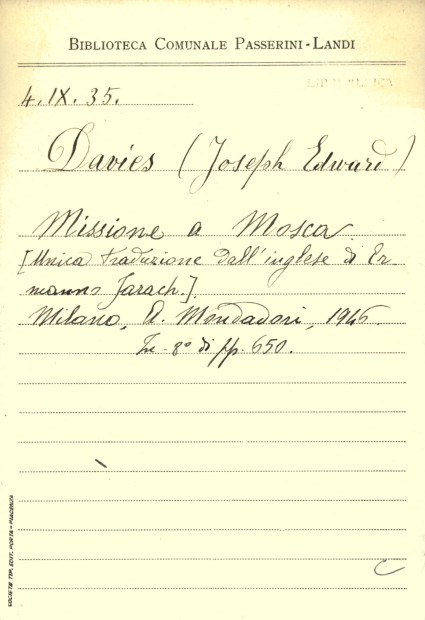 BIBLIOTECA COMUNALE PASSERINI-LANDI
4.IX.35.
Davies (Joseph Edward)
Missione a Mosca
[Unica traduzione dall'inglese di Er-
manno Jarach.].
Milano, A. Mondadori, 1946.
In-8º di pp. 650.
SOCIETÀ TIP. EDIT. PORTA - PIACENZA